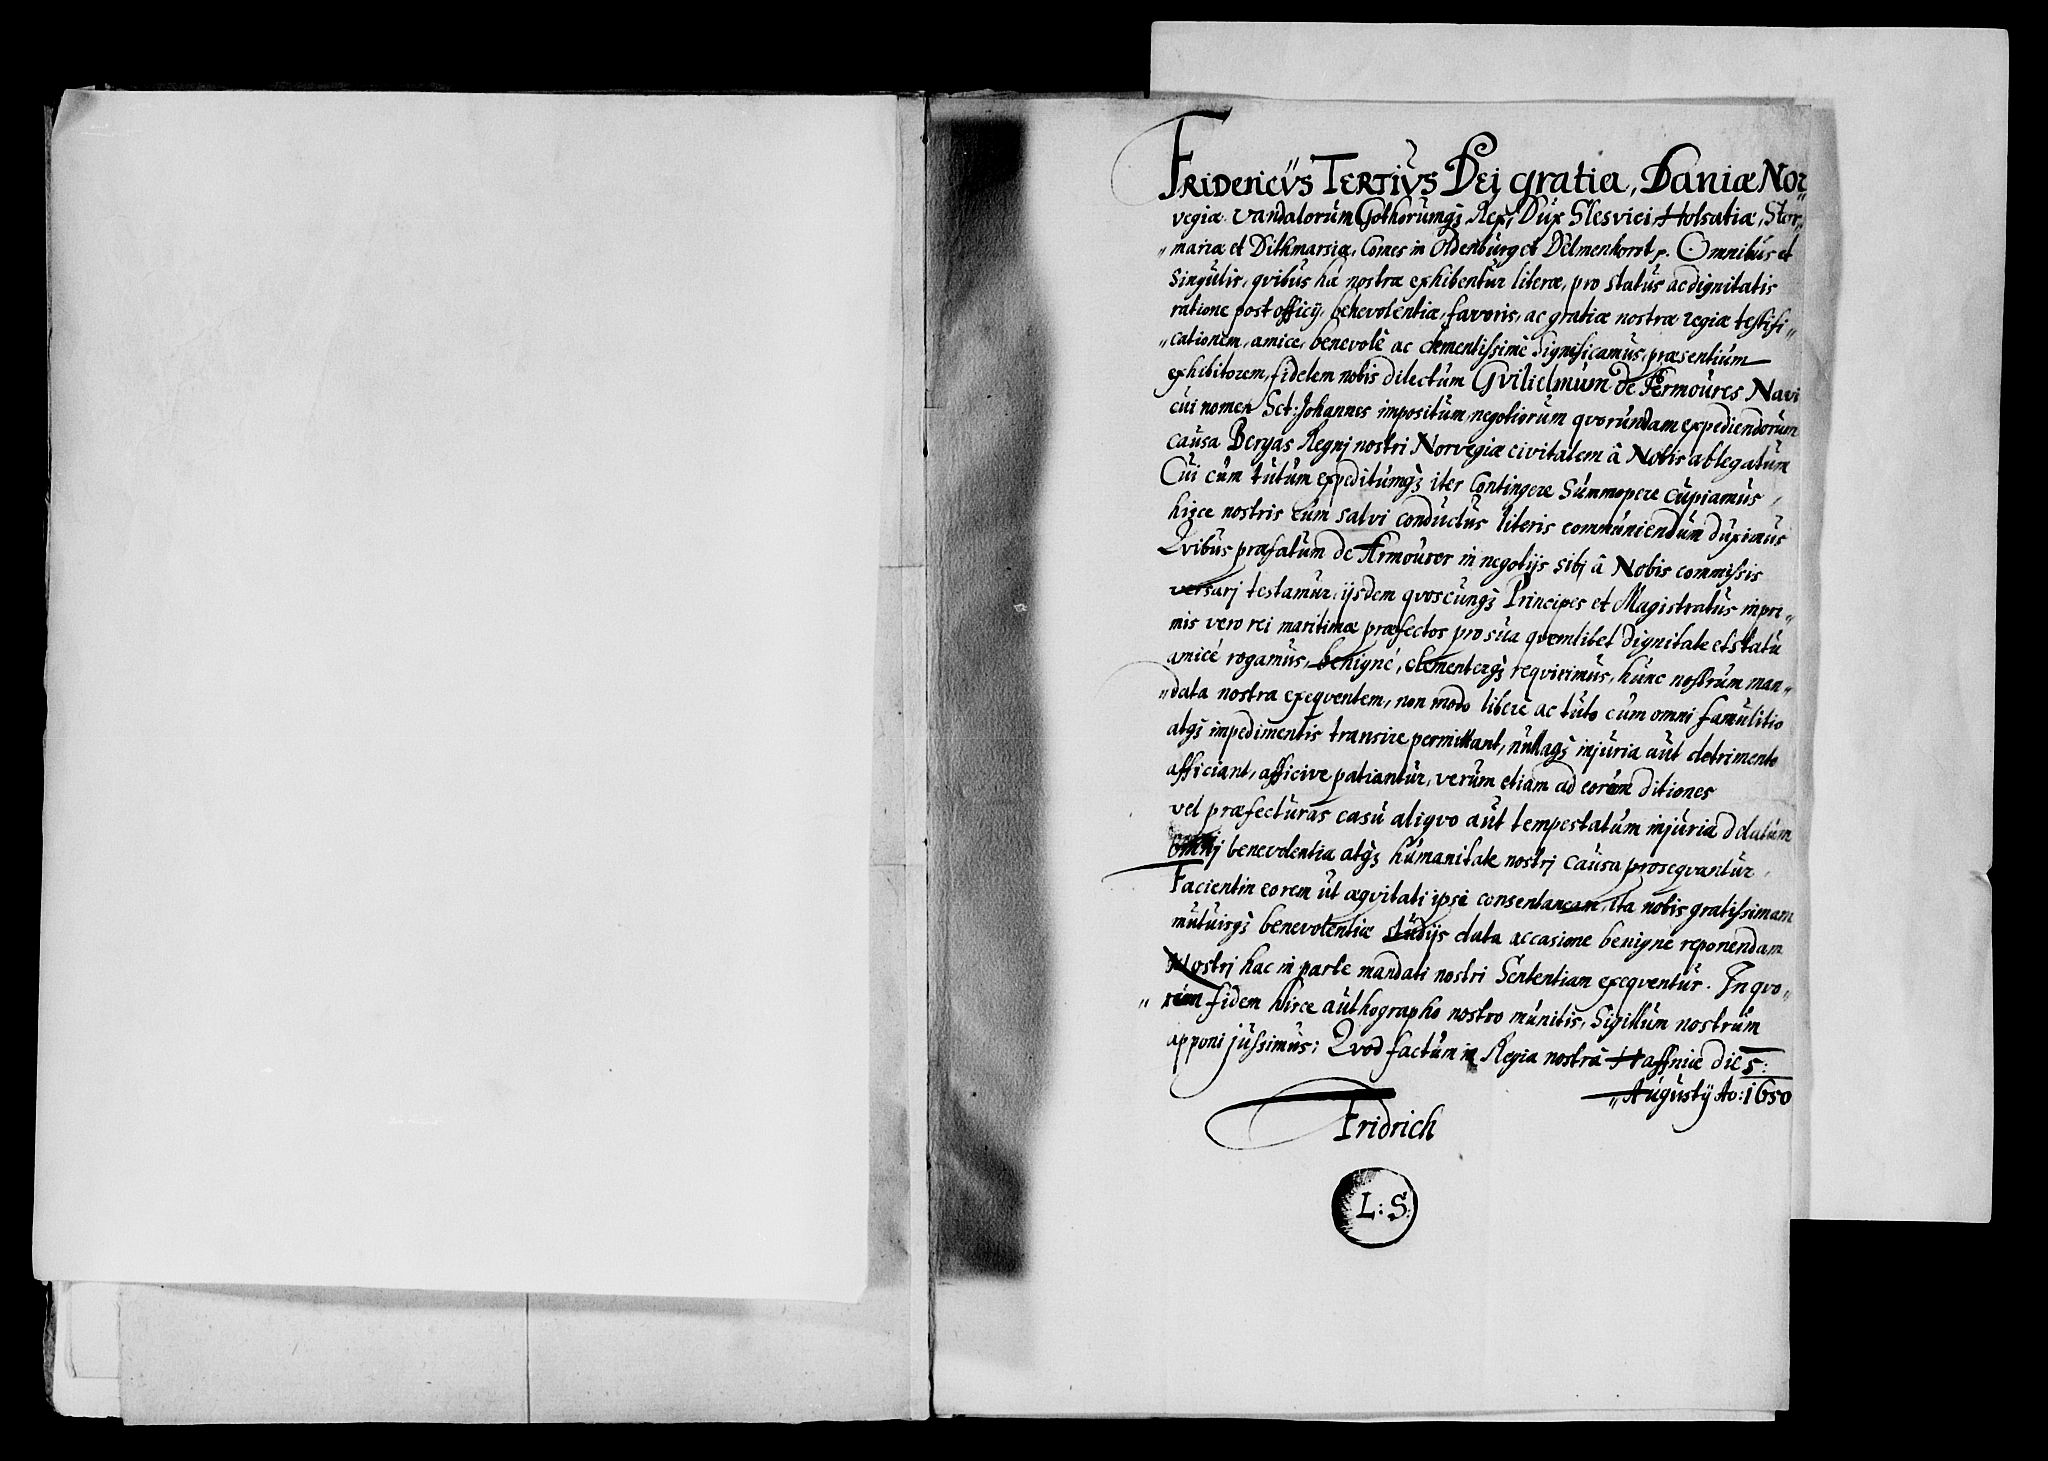 Fridericus Tertius Dej gratia, Daniæ Nor„
vegiæ Vandalorum Gothorumq; Rex, Dux Slesvici Holsatiæ, Stor„
„mariæ et Dithmarsiæ, Comes in Oldenburg et Delmenhorst p. Omnibus et
Singulis, qvibus hæ nostræ exhibentur literæ, pro status ac dignitatis
ratione post officij, benevolentiæ, favoris, ac gratiæ nostræ regiæ testifi„
„cationem, amice, benevolè ac clementissimè significamus, præsentium
exhibitorem, fidelem nobis dilectum Gvilielmum de Armoures Navi
cui nomen Sct: Johannes impositum, negotiorum qvorundam expediendorum
causa Bergas Regnj nostri Norvegiæ civitatem â Nobis ablegatum
Cui cum tutum expeditumq; iter Contingere Summopere cupiamus,
hisce nostris eum salvi conductus literis communiendum duximus
Qvibus præfatum de Armourer in negotijs sibj â Nobis commissis
versarj testamur, ijsdem qvoscunq; Principes et Magistratus inpri„
mis vero rei maritimæ præfectos pro sua qvemlibet dignitate et statu
amicé rogamus, benigné, clementerq; reqvirimus, hunc nostrum man„
„data nostra exeqventem, non modo liberè ac tuto cum omni famulitio
atq; impedimentis transire permittant, nullaq; injuria aut detrimento
afficiant, afficive patiantur, verum etiam ad eorum ditiones
vel præfecturas casu aliqvo aut tempestatum injuria delatum
omnj benevolentia atq; humanitate nostrj causa proseqvantur,
Facient in eo rem ut æqvitati ipsi consentaneam, ita nobis gratissimam
mutuisq; benevolentiæ studijs data accasione benigne reponendam
Nostrj hac in parte mandati nostri Sententiam exeqventur. In qvo„
„rum fidem hisce authographo nostro munitis, Sigillum nostrum
apponi jussimus; Qvod factum in Regia nostra Haffniæ die 5:
„Augustij Ao: 1650
Fridrich
L: S: